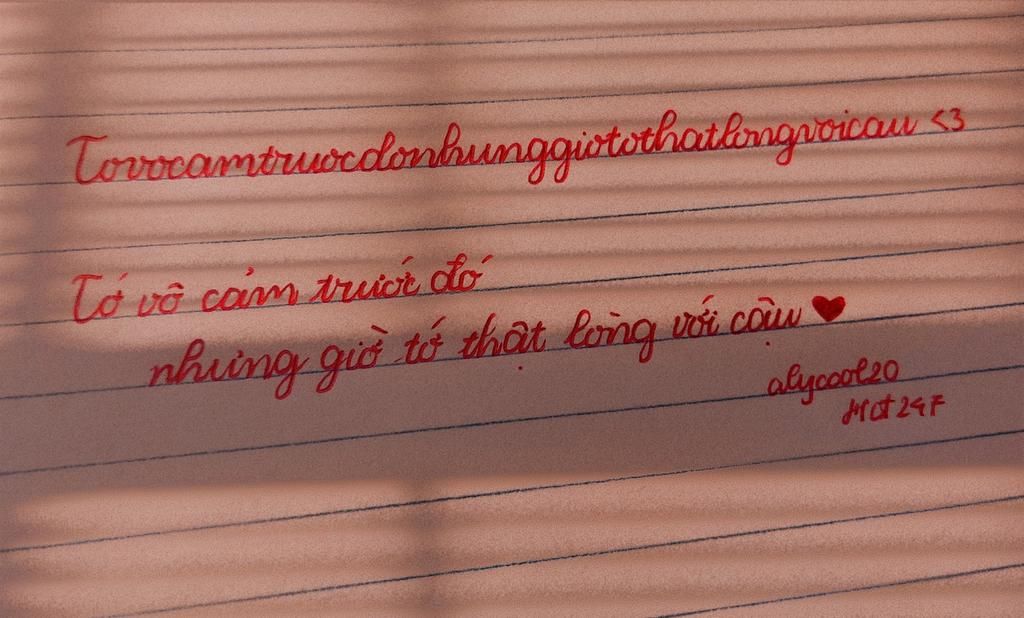 Tovocamtruocdonhunggiotothatlongvoicau <3
Tớ vô cảm trước đó
nhưng giờ tớ thật lòng với cậu ♥
alycool20
Hot24F